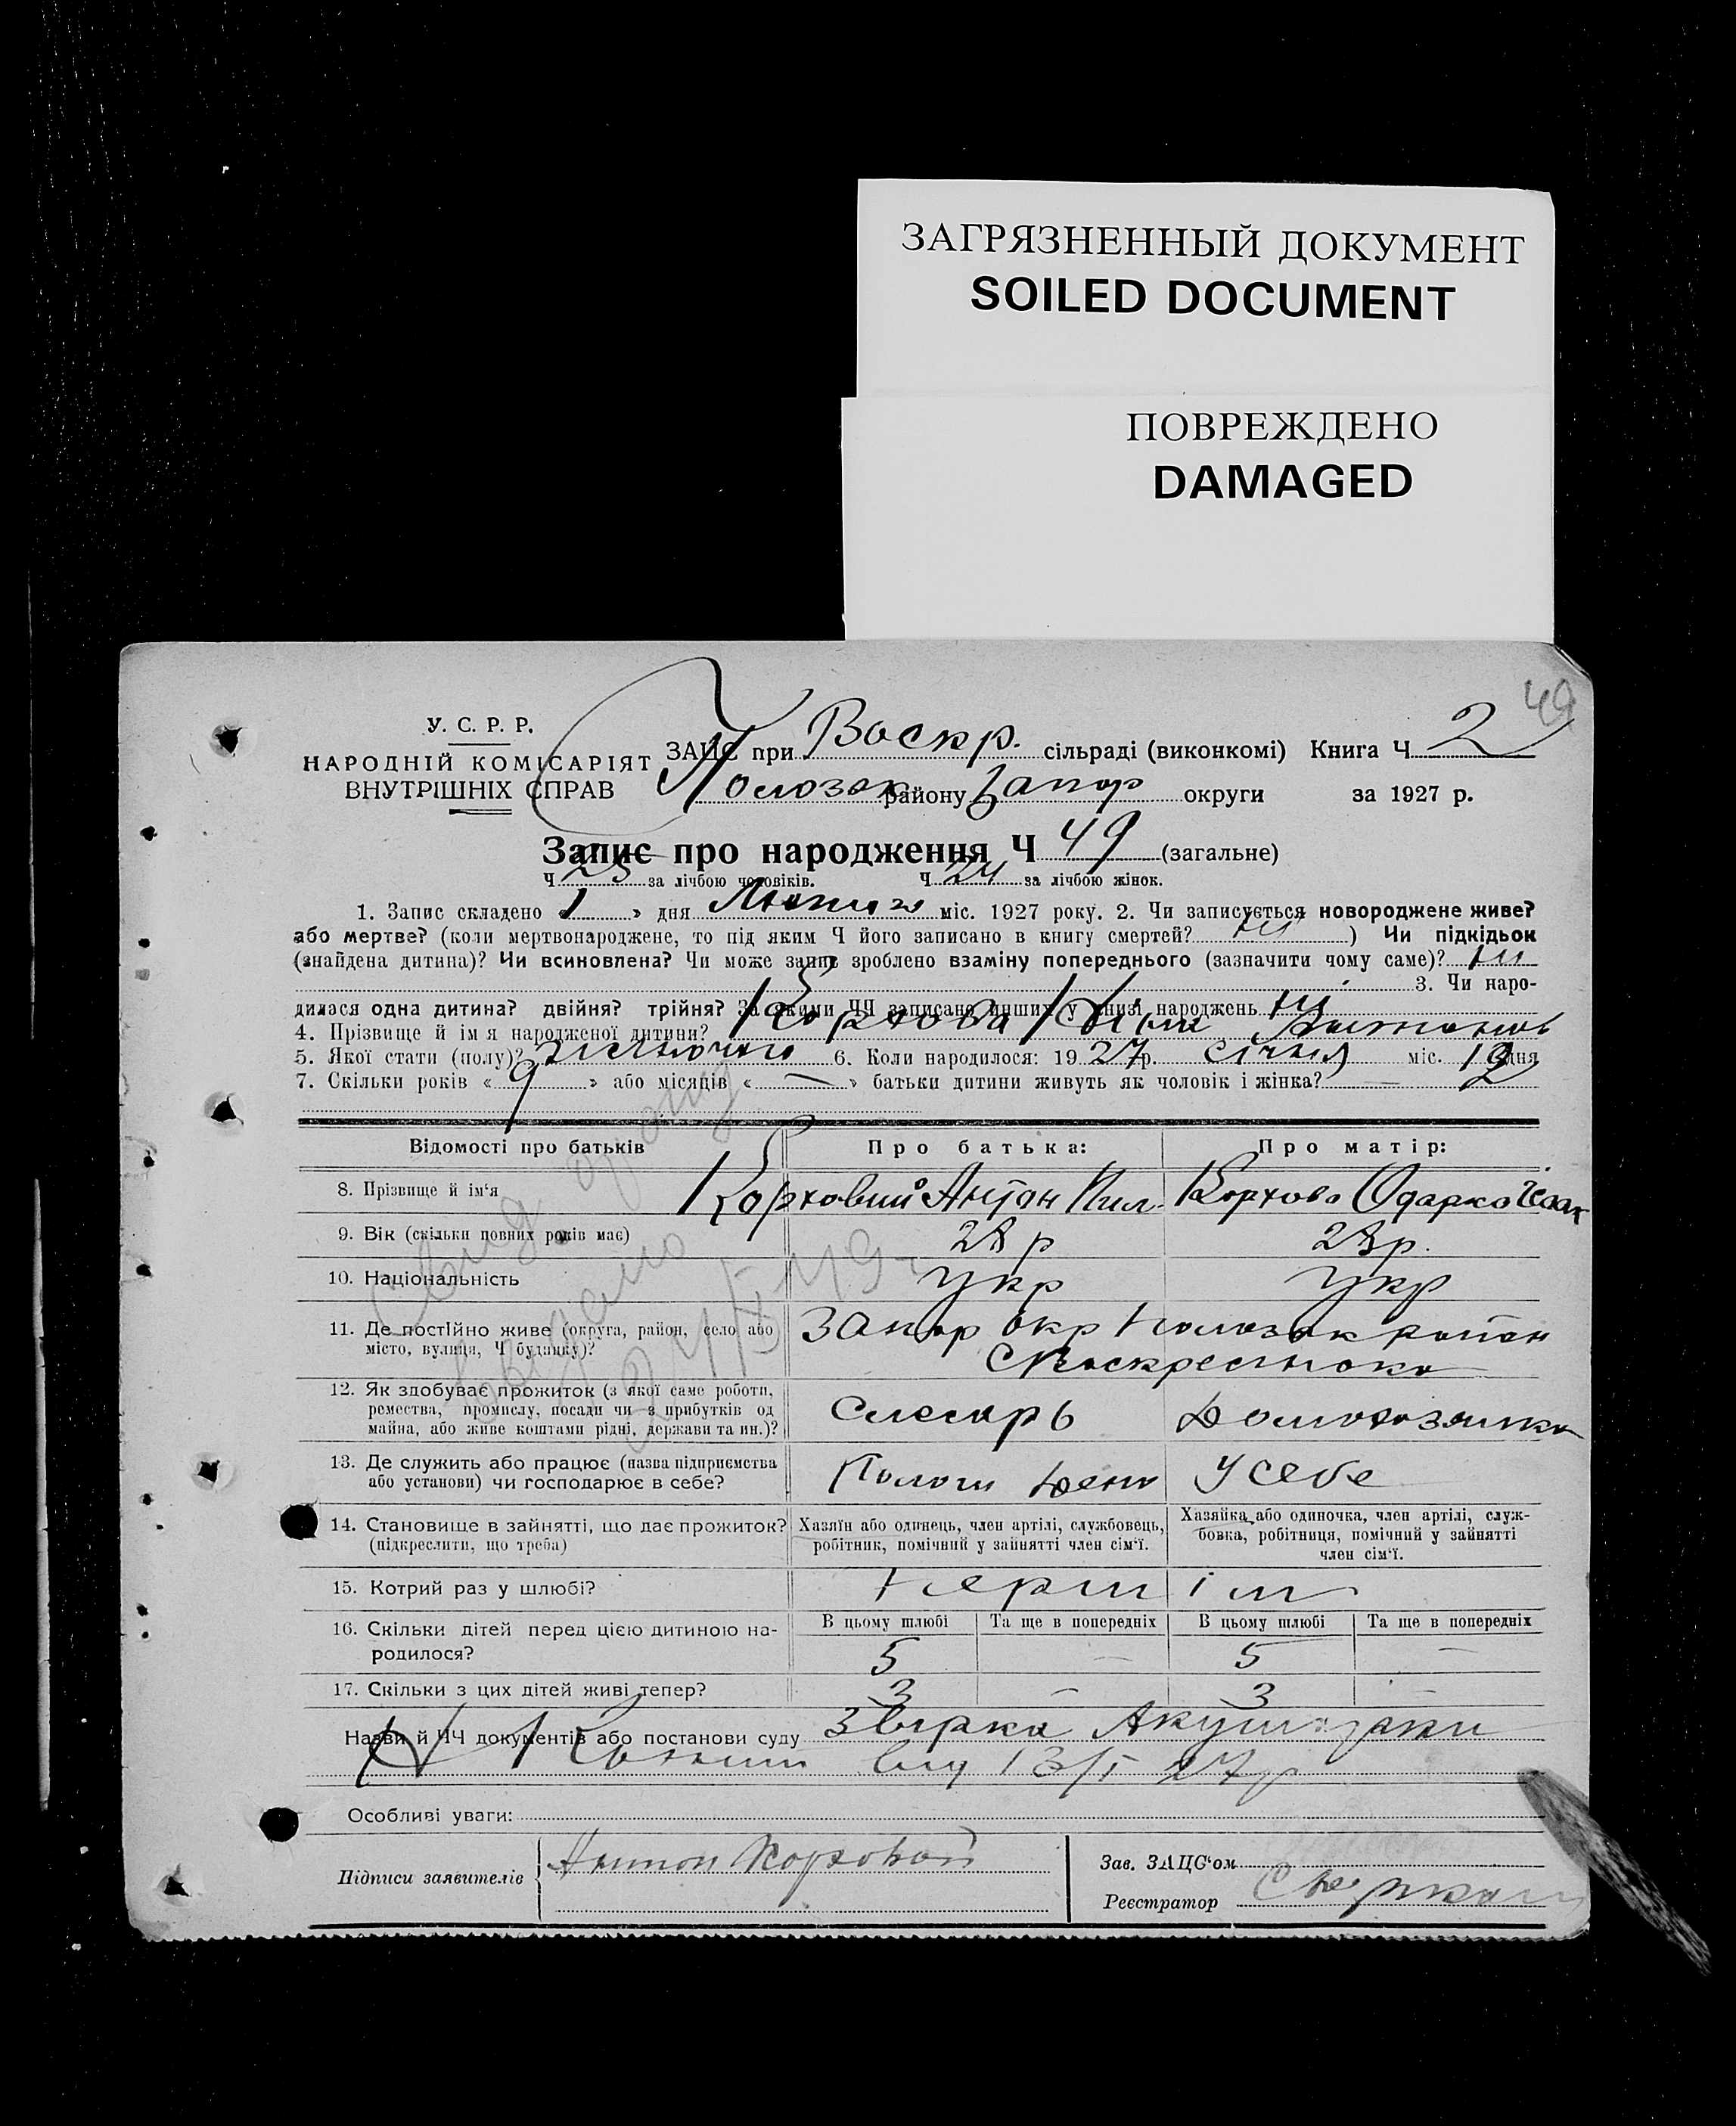 ЗАГРЯЗНЕННЫЙ ДОКУМЕНТ
SOILED DOCUMENT
ПОВРЕЖДЕНО
DAMAGED
49
У. С. Р. Р.
НАРОДНІЙ КОМІСАРІЯТ
ВНУТРІШНІХ СПРАВ
ЗАЦС при Воскр. сільраді (виконкомі) Книга Ч 2
району Запор округи за 1927 р.
Запис про народження Ч 49 (загальне)
Ч 25 за лічбою чоловіків. Ч 24 за лічбою жінок.
1. Запис складено « 1 » дня міс. 1927 року. 2. Чи записується новороджене живе?
або мертве? (коли мертвонароджене, то під яким Ч його записано в книгу смертей? ні ) Чи підкідьок
(знайдена дитина)? Чи всиновлена? Чи може запис зроблено взаміну попереднього (зазначити чому саме)? ні
3. Чи наро-
дилася одна дитина? двійня? трійня? За якими ЧЧ записано инших у книзі народжень ні
4. Прізвище й імя народженої дитини? Корхова
5. Якої стати (полу)? жіночого 6. Коли народилося: 1927 р. січня міс. дня
7. Скільки років « 9 » або місяців « — » батьки дитини живуть як чоловік і жінка? —
Відомості про батьків Про батька: Про матір:
8. Прізвище й ім‘я Корховий Антон Пил. Корхова Одарка Ісак
9. Вік (скільки повних років має) 28 р 28 р.
10. Національність Укр Укр
11. Де постійно живе (округа, район, село або Запор окр район
місто, вулиця, Ч будинку)? с Воскресенока
12. Як здобуває прожиток (з якої саме роботи,
ремества, промислу, посади чи з прибутків од Слесарь Домохозяйка
майна, або живе коштами рідні, держави та ин.)?
13. Де служить або працює (назва підприємства Пологи Депо У себе
або установи) чи господарює в себе?
14. Становище в зайнятті, що дає прожиток? Хазяїн або одинець, член артілі, службовець, Хазяйка або одиночка, член артілі, служ-
(підкреслити, що треба) робітник, помічний у зайнятті член сім‘ї. бовка, робітниця, помічний у зайнятті
член сім‘ї.
15. Котрий раз у шлюбі? Першім
В цьому шлюбі Та ще в попередніх В цьому шлюбі Та ще в попередніх
16. Скільки дітей перед цією дитиною на-
родилося? 5 — 5 —
17. Скільки з цих дітей живі тепер? 3 — 3 —
Назви й ЧЧ документів або постанови суду Звірка Акушерки
від 13/І 27 р
Особливі уваги:
Підписи заявителів Антон Корховой
Зав. ЗАЦС‘ом
Реєстратор